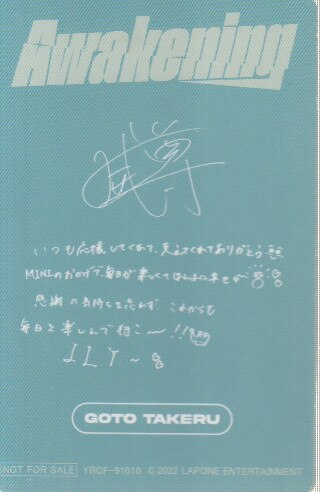 Awakening
武尊
いつも応援してくれて、支えてくれてありがとう
MINIのおかげで毎日が楽しくてほんまに幸せ
感謝の気持ちを忘れず これからも
毎日を楽しんで行こ〜!!
ILY〜
GOTO TAKERU
NOT FOR SALE YRCF-91010 © 2022 LAPONE ENTERTAINMENT